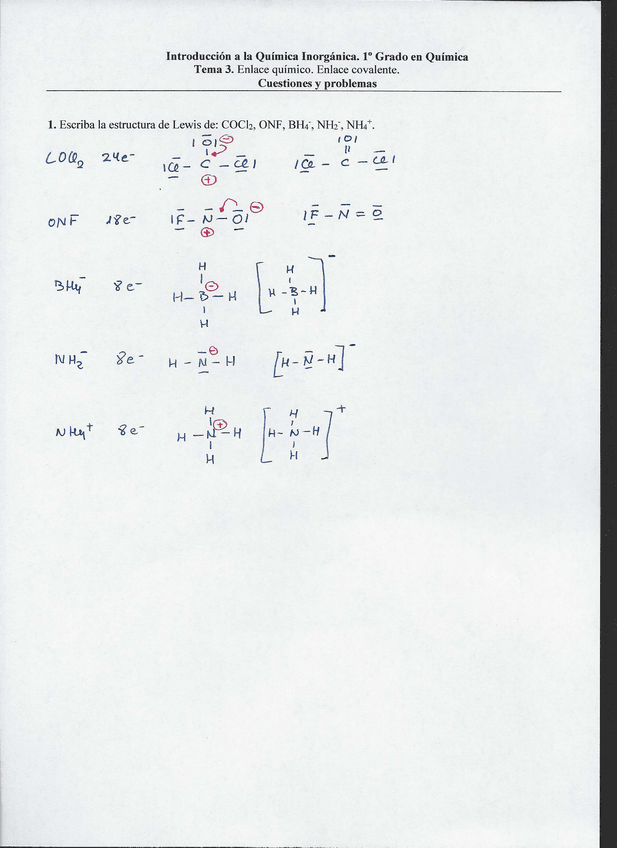 Introducción a la Química Inorgánica. 1º Grado en Química
Tema 3. Enlace químico. Enlace covalente.
Cuestiones y problemas
1. Escriba la estructura de Lewis de: COCl₂, ONF, BH₄⁻, NH₂⁻, NH₄⁺.
|O| ⊖ |O|
COCl₂ 24e⁻ |Cl – C – Cl| |Cl – C – Cl|
⊕
ONF 18e⁻ |F – N – O| ⊖ |F – N = O
⊕
H H −
BH₄⁻ 8e⁻ H – B – H ⊖ [H – B – H]
H H
NH₂⁻ 8e⁻ H – N – H ⊖ [H – N – H]⁻
H H +
NH₄⁺ 8e⁻ H – N – H ⊕ [H – N – H]
H H